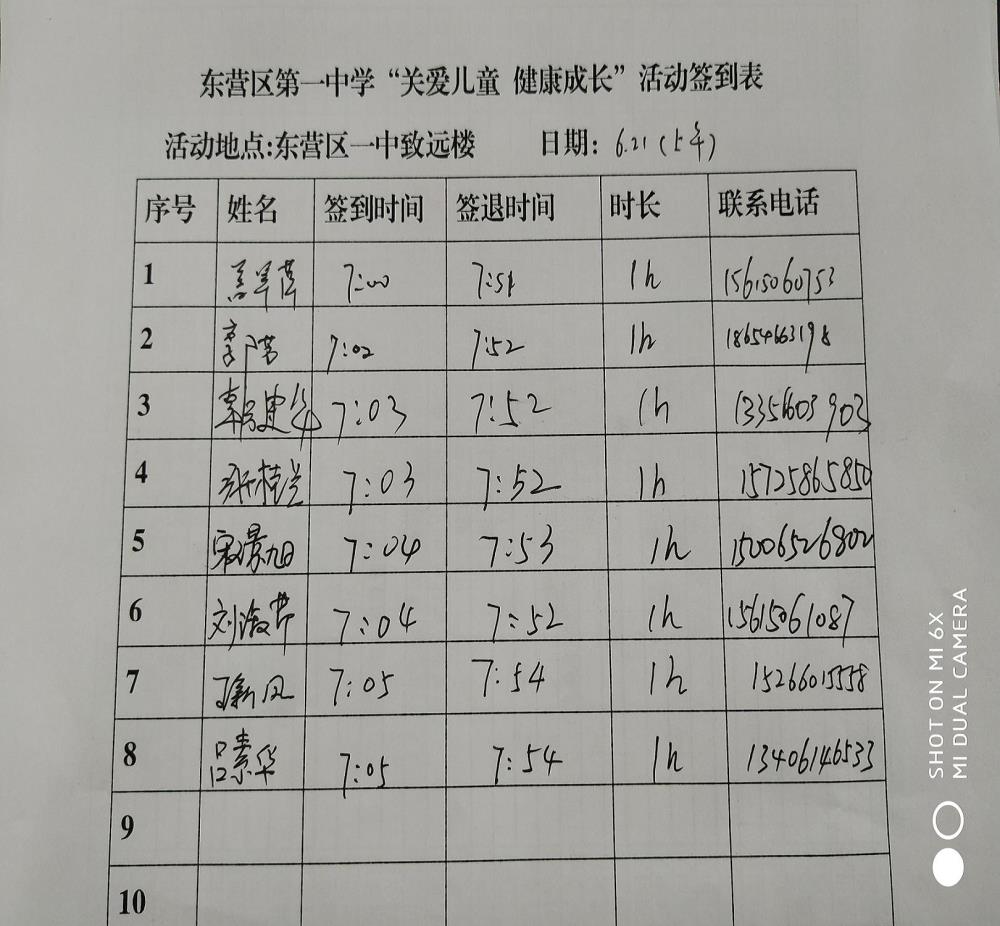 东营区第一中学“关爱儿童 健康成长”活动签到表
活动地点:东营区一中致远楼 日期: 6.21 (上午)
序号 姓名 签到时间 签退时间 时长 联系电话
1 7:00 7:51 1h 15615060753
2 李营 7:02 7:52 1h 18654663198
3 韩建华 7:03 7:52 1h 13356603903
4 张桂兰 7:03 7:52 1h 15725865850
5 宋景旭 7:04 7:53 1h 15006526802
6 刘海芹 7:04 7:52 1h 15615061087
7 7:05 7:54 1h 15266015558
8 吕素华 7:05 7:54 1h 13406146533
9
10
SHOT ON MI 6X
MI DUAL CAMERA